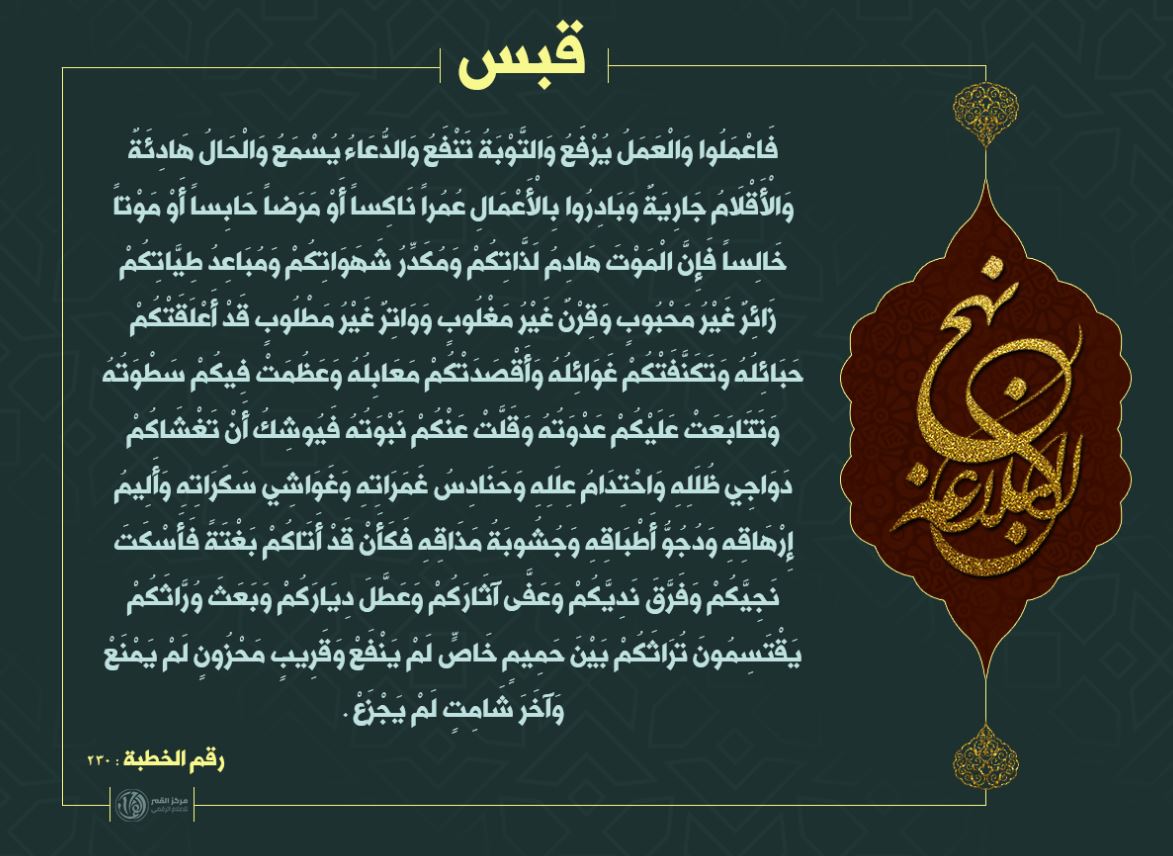 قبس
فَاعْمَلُوا وَالْعَمَلُ يُرْفَعُ وَالتَّوْبَةُ تَنْفَعُ وَالدُّعَاءُ يُسْمَعُ وَالْحَالُ هَادِئَةٌ
وَالْأَقْلَامُ جَارِيَةٌ وَبَادِرُوا بِالْأَعْمَالِ عُمُراً نَاكِساً أَوْ مَرَضاً حَابِساً أَوْ مَوْتاً
خَالِساً فَإِنَّ الْمَوْتَ هَادِمُ لَذَّاتِكُمْ وَمُكَدِّرُ شَهَوَاتِكُمْ وَمُبَاعِدُ طِيَّاتِكُمْ
زَائِرٌ غَيْرُ مَحْبُوبٍ وَقِرْنٌ غَيْرُ مَغْلُوبٍ وَوَاتِرٌ غَيْرُ مَطْلُوبٍ قَدْ أَعْلَقَتْكُمْ
حَبَائِلُهُ وَتَكَنَّفَتْكُمْ غَوَائِلُهُ وَأَقْصَدَتْكُمْ مَعَابِلُهُ وَعَظُمَتْ فِيكُمْ سَطْوَتُهُ
وَتَتَابَعَتْ عَلَيْكُمْ عَدْوَتُهُ وَقَلَّتْ عَنْكُمْ نَبْوَتُهُ فَيُوشِكُ أَنْ تَغْشَاكُمْ
دَوَاجِي ظُلَلِهِ وَاحْتِدَامُ عِلَلِهِ وَحَنَادِسُ غَمَرَاتِهِ وَغَوَاشِي سَكَرَاتِهِ وَأَلِيمُ
إِرْهَاقِهِ وَدُجُوُّ أَطْبَاقِهِ وَجُشُوبَةُ مَذَاقِهِ فَكَأَنْ قَدْ أَتَاكُمْ بَغْتَةً فَأَسْكَتَ
نَجِيَّكُمْ وَفَرَّقَ نَدِيَّكُمْ وَعَفَّى آثَارَكُمْ وَعَطَّلَ دِيَارَكُمْ وَبَعَثَ وُرَّاثَكُمْ
يَقْتَسِمُونَ تُرَاثَكُمْ بَيْنَ حَمِيمٍ خَاصٍّ لَمْ يَنْفَعْ وَقَرِيبٍ مَحْزُونٍ لَمْ يَمْنَعْ
وَآخَرَ شَامِتٍ لَمْ يَجْزَعْ .
رقم الخطبة : ٢٣٠
نهج البلاغة
مركز القمر
للاعلام الرقمي